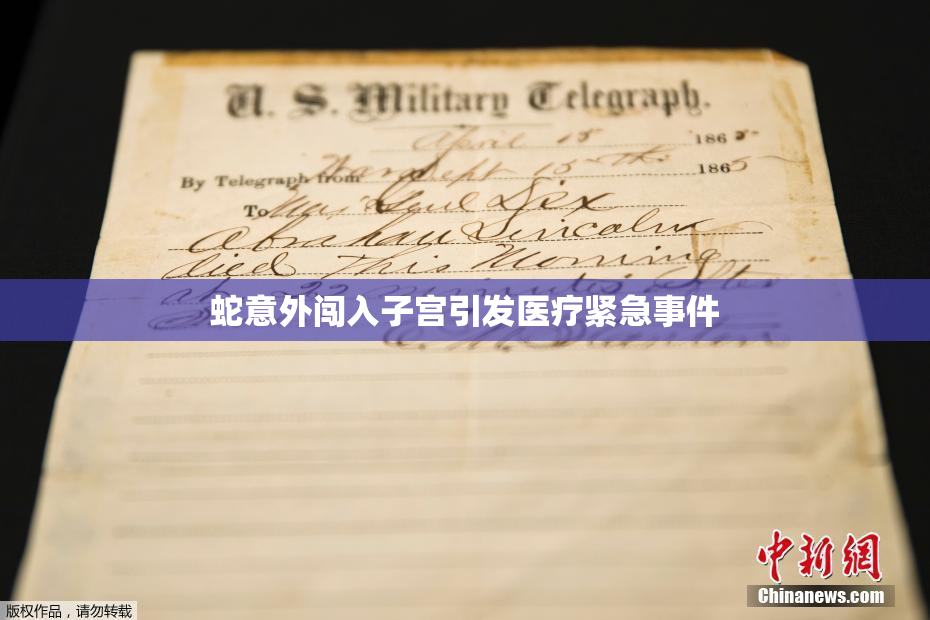 U. S. Military Telegraph.
April 15 1865
By Telegraph from War Dept 15th 1865
To Maj Genl Dix
Abraham Lincoln
died This Morning
at 22 minutes after
蛇意外闯入子宫引发医疗紧急事件
E. M. Stanton
中新網
Chinanews.com
版权作品，请勿转载